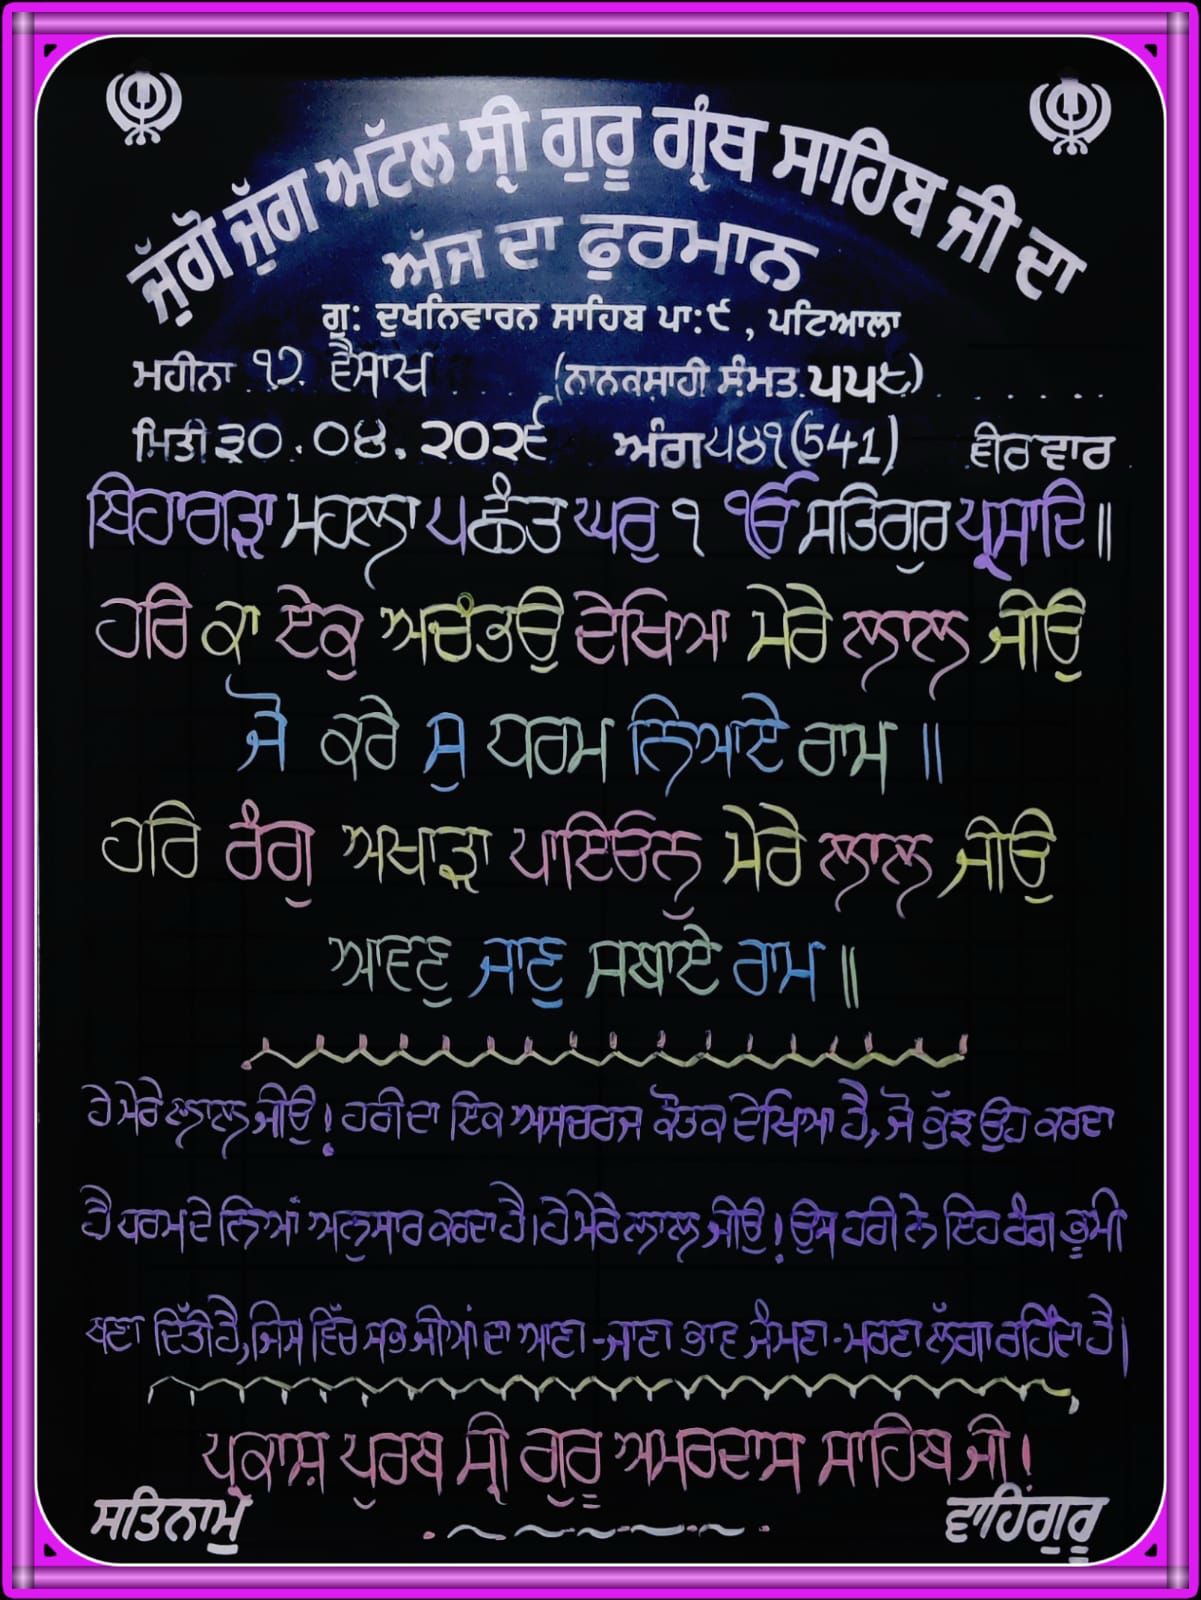 ਜੁੱਗੋ ਜੁੱਗ ਅਟੱਲ ਸ੍ਰੀ ਗੁਰੂ ਗ੍ਰੰਥ ਸਾਹਿਬ ਜੀ ਦਾ
ਅੱਜ ਦਾ ਫੁਰਮਾਨ
ਗੁ: ਦੁਖਨਿਵਾਰਨ ਸਾਹਿਬ ਪਾ:੯ , ਪਟਿਆਲਾ
ਮਹੀਨਾ ੧੭ ਵੈਸਾਖ (ਨਾਨਕਸ਼ਾਹੀ ਸੰਮਤ ੫੫੮)
ਮਿਤੀ ੩੦.੦੪.੨੦੨੬ ਅੰਗ ੫੪੧(541) ਵੀਰਵਾਰ
ਬਿਹਾਗੜਾ ਮਹਲਾ ੫ ਛੰਤ ਘਰੁ ੧ ੴ ਸਤਿਗੁਰ ਪ੍ਰਸਾਦਿ॥
ਹਰਿ ਕਾ ਏਕੁ ਅਚੰਭਉ ਦੇਖਿਆ ਮੇਰੇ ਲਾਲ ਜੀਉ
ਜੋ ਕਰੇ ਸੁ ਧਰਮ ਨਿਆਏ ਰਾਮ ॥
ਹਰਿ ਰੰਗੁ ਅਖਾੜਾ ਪਾਇਓਨੁ ਮੇਰੇ ਲਾਲ ਜੀਉ
ਆਵਣੁ ਜਾਣੁ ਸਬਾਏ ਰਾਮ ॥
ਹੇ ਮੇਰੇ ਲਾਲ ਜੀਉ! ਹਰੀ ਦਾ ਇਕ ਅਸਚਰਜ ਕੌਤਕ ਦੇਖਿਆ ਹੈ, ਜੋ ਕੁੱਝ ਉਹ ਕਰਦਾ
ਹੈ ਧਰਮ ਦੇ ਨਿਆਂ ਅਨੁਸਾਰ ਕਰਦਾ ਹੈ। ਹੇ ਮੇਰੇ ਲਾਲ ਜੀਉ! ਉਸ ਹਰੀ ਨੇ ਇਹ ਰੰਗ ਭੂਮੀ
ਬਣਾ ਦਿੱਤੀ ਹੈ, ਜਿਸ ਵਿੱਚ ਸਭ ਜੀਆਂ ਦਾ ਆਣਾ-ਜਾਣਾ ਭਾਵ ਜੰਮਣਾ-ਮਰਣਾ ਲੱਗਾ ਰਹਿੰਦਾ ਹੈ।
ਪ੍ਰਕਾਸ਼ ਪੁਰਬ ਸ੍ਰੀ ਗੁਰੂ ਅਮਰਦਾਸ ਸਾਹਿਬ ਜੀ!
ਸਤਿਨਾਮੁ ਵਾਹਿਗੁਰੂ